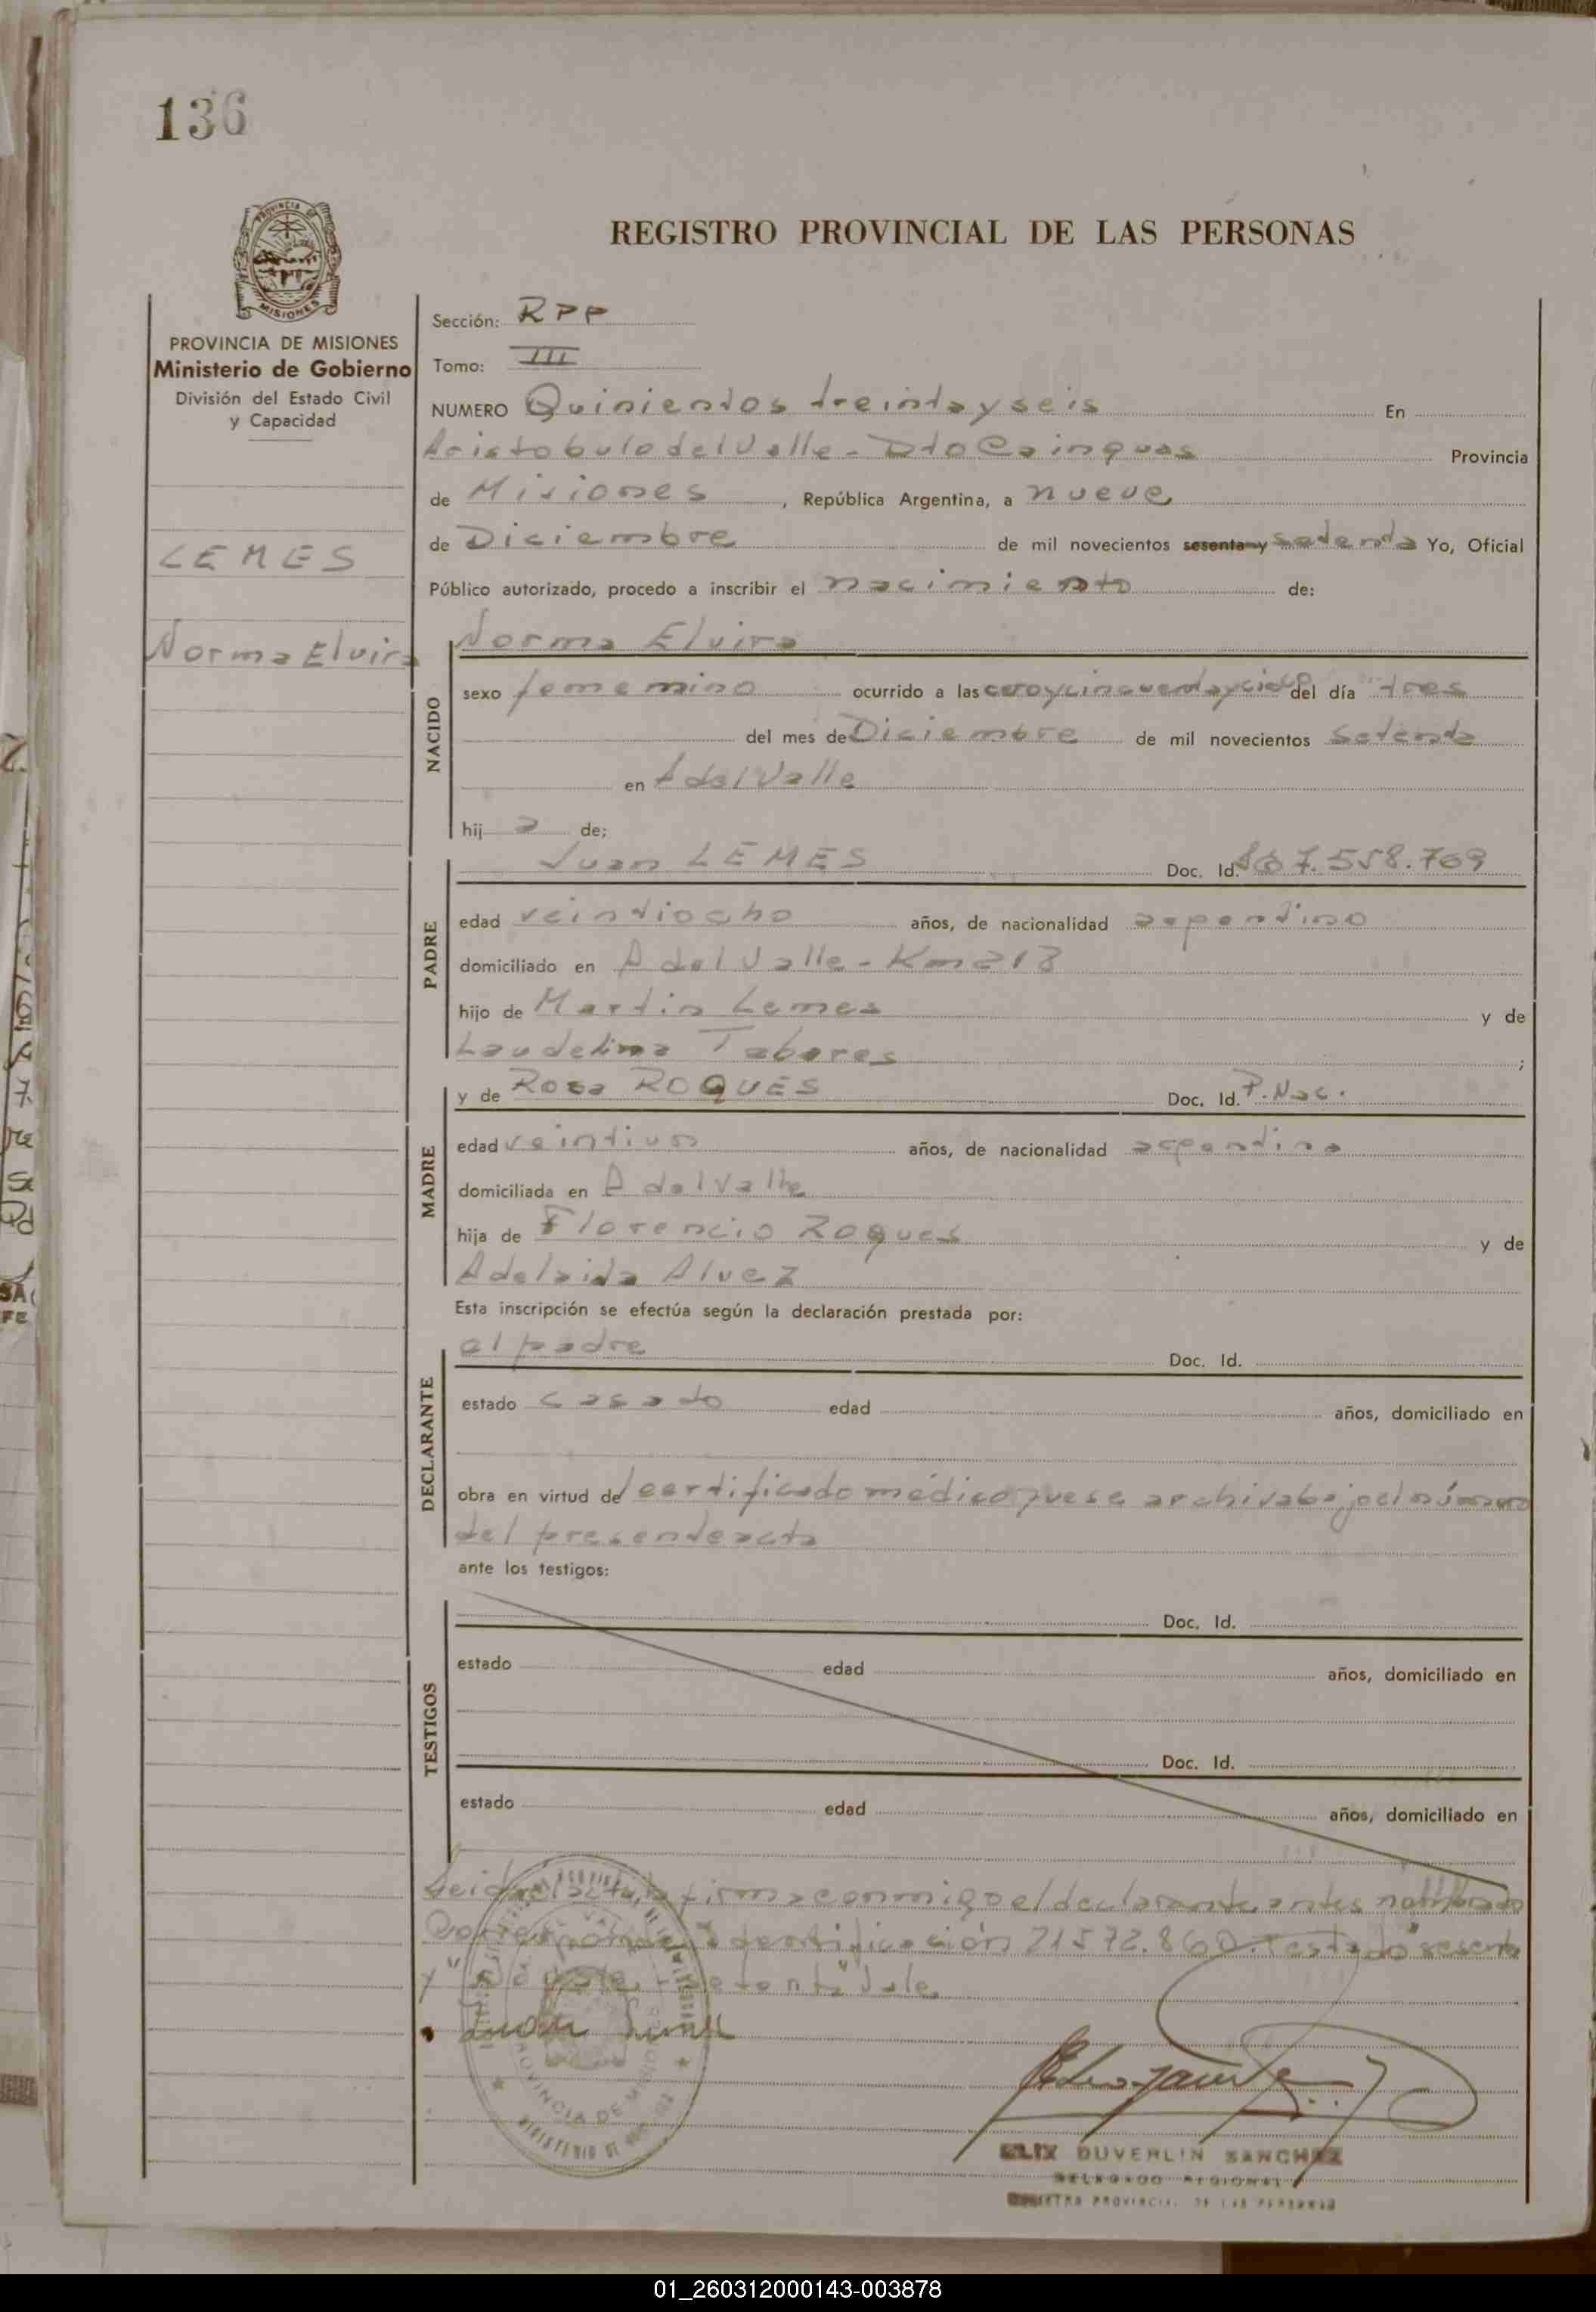 136
REGISTRO PROVINCIAL DE LAS PERSONAS
PROVINCIA DE
MISIONES
PROVINCIA DE MISIONES
Ministerio de Gobierno
División del Estado Civil
y Capacidad
LEMES
Norma Elvira
Sección: RPP
Tomo: III
NUMERO Quinientos treinta y seis En
Aristobulo del Valle - Dto Cainguas Provincia
de Misiones , República Argentina, a nueve
de Diciembre de mil novecientos sesenta y setenta Yo, Oficial
Público autorizado, procedo a inscribir el nacimiento de:
NACIDO
Norma Elvira
sexo femenino ocurrido a las cero y cincuenta y cinco del día tres
del mes de Diciembre de mil novecientos setenta
en A del Valle
hij a de;
PADRE
Juan LEMES Doc. Id. 7.558.769
edad veintiocho años, de nacionalidad argentino
domiciliado en A del Valle - Km 218
hijo de Martin Lemes y de
Laudelina Tabares ;
MADRE
y de Rosa ROQUES Doc. Id. P. Nac.
edad veintiun años, de nacionalidad argentina
domiciliada en A del Valle
hija de Florencio Roques y de
Adelaida Alvez
Esta inscripción se efectúa según la declaración prestada por:
DECLARANTE
el padre Doc. Id.
estado casado edad años, domiciliado en
obra en virtud del certificado médico que se archiva bajo el número
del presente acta
ante los testigos:
TESTIGOS
Doc. Id.
estado edad años, domiciliado en
Doc. Id.
estado edad años, domiciliado en
Leida el acta, la firma conmigo el declarante antes nombrado
Corresponde identificación 21572.860. Testado "sesenta
y" setenta" Vale.
Juan Lemes
PROVINCIA DE MISIONES
MINISTERIO DE
DUVERLIN SANCHEZ
DELEGADO REGIONAL
REGISTRO PROVINCIAL DE LAS PERSONAS
01_260312000143-003878